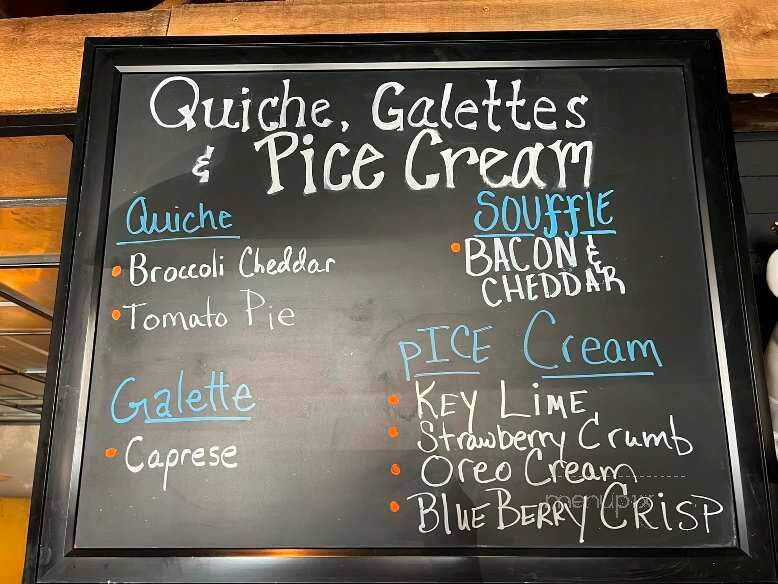 Quiche, Galettes
& Pice Cream
Quiche
Broccoli Cheddar
Tomato Pie
Galette
Caprese
SOUffLE
BACON &
CHEDDAR
pICE Cream
KEY LIME
Strawberry Crumb
Oreo Cream
BLUEBERRY CRISP
menupix